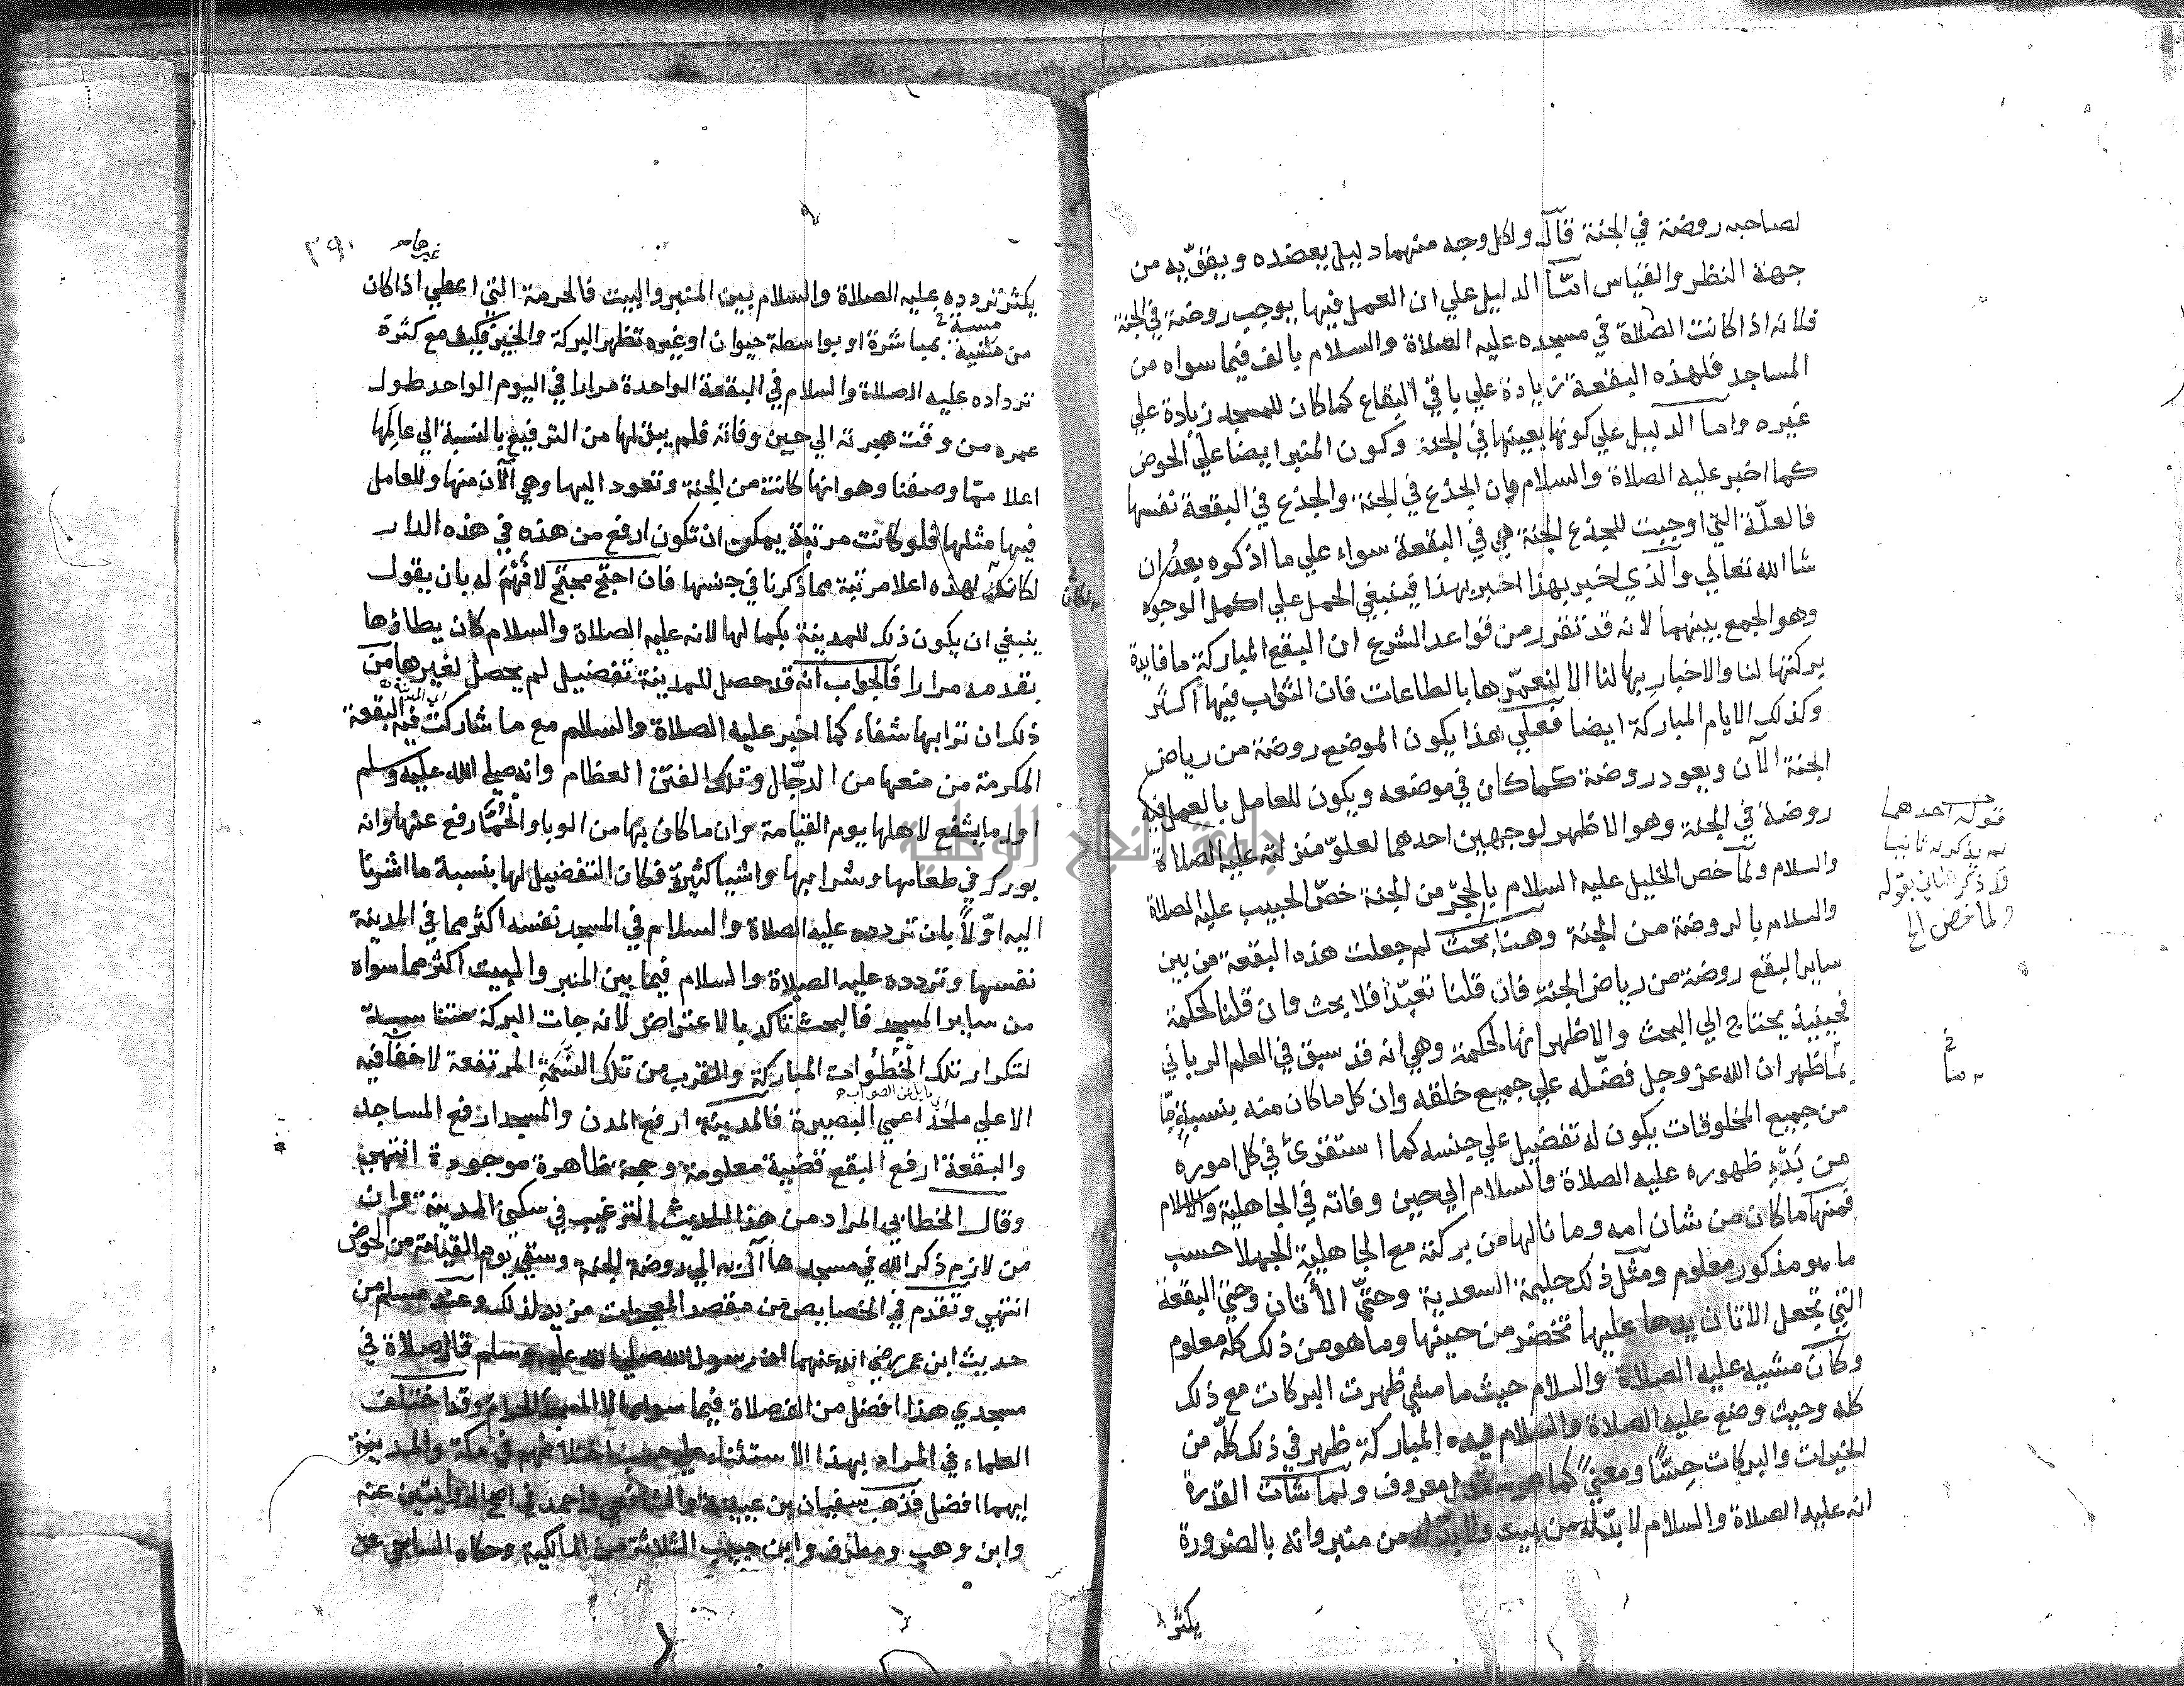 لصاحبه روضة في الجنة قال ولكل وجه منهما دليل يعضده ويقوّيه من
جهة النظر والقياس امّا الدليل علي ان العمل فيها يوجب روضة في الجنة
فلانه اذا كانت الصلاة في مسجده عليه الصلاة والسلام بالف فيما سواه من
المساجد فلهذه البقعة زيادة علي باقي البقاع كما كان للمسجد زيادة علي
غيره واما الدليل علي كونها بعينها في الجنة وكون المنبر ايضا علي الحوض
كما اخبر عليه الصلاة والسلام وان الجذع في الجنة والجذع في البقعة نفسها
فالعلّة التي اوجبت للجذع الجنة هي في البقعة سواء علي ما اذكره بعد ان
شا الله تعالي والذي اخبر بهذا اخبر بهذا فينبغي الحمل علي اكمل الوجوه
وهو الجمع بينهما لانه قد تقرر من قواعد الشرع ان البقع المباركة ما فايدة
بركتها لنا والاخبار بها لنا الا لنعمّرها بالطاعات فان الثواب فيها اكثر
وكذلك الايام المباركة ايضا فعلي هذا يكون الموضع روضة من رياض
الجنة الآن ويعود روضة كما كان في موضعه ويكون للعامل بالعمل فيه
روضة في الجنة وهو الاظهر لوجهين احدهما لعلوّ منزلته عليه الصلاة
والسلام ولما خص الخليل عليه السلام بالحجر من الجنة خصّ الحبيب عليه الصلاة
والسلام بالروضة من الجنة وهنا بحث لم جعلت هذه البقعة من بين
ساير البقع روضة من رياض الجنة فان قلنا تعبّدا فلا بحث وان قلنا لحكمة
فحينيذ يحتاج الي البحث والاظهر انها لحكمة وهي انه قد سبق في العلم الرباني
بما ظهر ان الله عز وجل فضّله علي جميع خلقه وان كل ما كان منه بنسبةٍ مّا
من جميع المخلوقات يكون له تفضيل علي جنسه كما استقرئ في كل اموره
من بَدْءِ ظهوره عليه الصلاة والسلام الي حين وفاته في الجاهلية والاسلام
فمنها ما كان من شان امه وما نالها من بركته مع الجاهلية الجهلا حسب
ما هو مذكور معلوم ومثل ذلك حليمة السعدية وحتّي الأتان وحتي البقعة
التي تجعل الاتان يدها عليها تخضر من حينها وما هو من ذلك كله معلوم
وكان مشيه عليه الصلاة والسلام حيث ما مشي ظهرت البركات مع ذلك
كله وحيث وضع عليه الصلاة والسلام يده المباركة ظهر في ذلك كلّه من
الخيرات والبركات حِسًّا ومعنيً كما هو منقول معروف ولما شات القدرة
انه عليه الصلاة والسلام لا بدّ له من بيت ولا بدّ له من منبر وانه بالضرورة
يكثر
قوله احدهما
لم يذكر ثانيا
قد ذكر الثاني بقوله
ولما خص الخ
يكثر تردده عليه الصلاة والسلام بين المنبر والبيت فالحرمة التي اعطي اذا كان
مسة
من مشية بمباشرة او بواسطة حيوان او غيره تظهر البركة والخير فكيف مع كثرة
ترداده عليه الصلاة والسلام في البقعة الواحدة مرارا في اليوم الواحد طول
عمره من وقت هجرته الي حين وفاته فلم يبق لها من الترفيع بالنسبة الي عالمها
اعلا ممّا وصفنا وهو انها كانت من الجنة وتعود اليها وهي الآن منها وللعامل
فيها مثلها فلو كانت مرتبة يمكن ان تكون ارفع من هذه في هذه الدار
لكانت لهذه اعلا مرتبة مما ذكرنا في جنسها فان احتج محتج لا فَهْمَ له بان يقول
ينبغي ان يكون ذلك للمدينة بكمالها لانه عليه الصلاة والسلام كان يطاؤها
بقدمه مرارا فالجواب انه قد حصل للمدينة تفضيل لم يحصل لغيرها من
اي المدينة
ذلك ان ترابها شفاء كما اخبر عليه الصلاة والسلام مع ما شاركت فيه البقعة
المكرمة من منعها من الدجّال وتلك الفتن العظام وانه صلي الله عليه وسلم
اول ما يشفع لاهلها يوم القيامة وان ما كان بها من الوبا والحُمّا رفع عنها وانه
بورك في طعامها وشرابها واشيا كثيرة فكان التفضيل لها بنسبة ما اشرنا
اليه اوّلاً بان تردده عليه الصلاة والسلام في المسجد نفسه اكثر مما في المدينة
نفسها وتردده عليه الصلاة والسلام فيما بين المنبر والبيت اكثر مما سواه
من ساير المسجد فالبحث تاكد بالاعتراض لانه جات البركة متناسبة
لتكرار تلك الخُطُوات المباركة والقرب من تلك النَّسَمَةِ المرتفعة لا خفا فيه
الا علي ملحد اعمي البصيرة فالمدينة ارفع المدن والمسجد ارفع المساجد
والبقعة ارفع البقع قضية معلومة وحجة ظاهرة موجودة انتهي
وقال الخطابي المراد من هذا الحديث الترغيب في سكني المدينة وان
من لازم ذكر الله في مسجدها آل به الي روضة الجنة وسقي يوم القيامة من الحوض
انتهي وتقدم في الخصايص من مقصد المعجزات مزيد لذلك وعند مسلم من
حديث ابن عمر رضي الله عنهما ان رسول الله صلي الله عليه وسلم قال صلاة في
مسجدي هذا افضل من الف صلاة فيما سواه الا المسجد الحرام وقد اختلف
العلماء في المراد بهذا الاستثناء علي حسب اختلافهم في مكة والمدينة
ايهما افضل فذهب سفيان بن عيينة والشافعي واحمد في اصح الروايتين عنه
وابن وهب ومطرف وابن حبيب الثلاثة من المالكية وحكاه الساجي عن